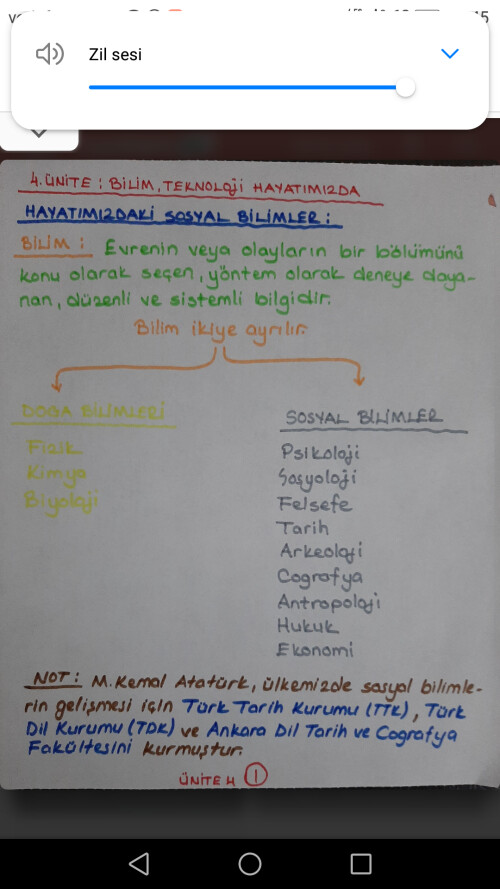 Zil sesi
4. ÜNİTE : BİLİM, TEKNOLOJİ HAYATIMIZDA
HAYATIMIZDAKİ SOSYAL BİLİMLER :
BİLİM : Evrenin veya olayların bir bölümünü
konu olarak seçen, yöntem olarak deneye daya-
nan, düzenli ve sistemli bilgidir.
Bilim ikiye ayrılır.
DOĞA BİLİMLERİ
Fizik
Kimya
Biyoloji
SOSYAL BİLİMLER
Psikoloji
Sosyoloji
Felsefe
Tarih
Arkeoloji
Cografya
Antropoloji
Hukuk
Ekonomi
NOT : M. Kemal Atatürk, ülkemizde sosyal bilimle-
rin gelişmesi için Türk Tarih Kurumu (TTK), Türk
Dil Kurumu (TDK) ve Ankara Dil Tarih ve Cografya
Fakültesini kurmuştur.
ÜNİTE 4 1